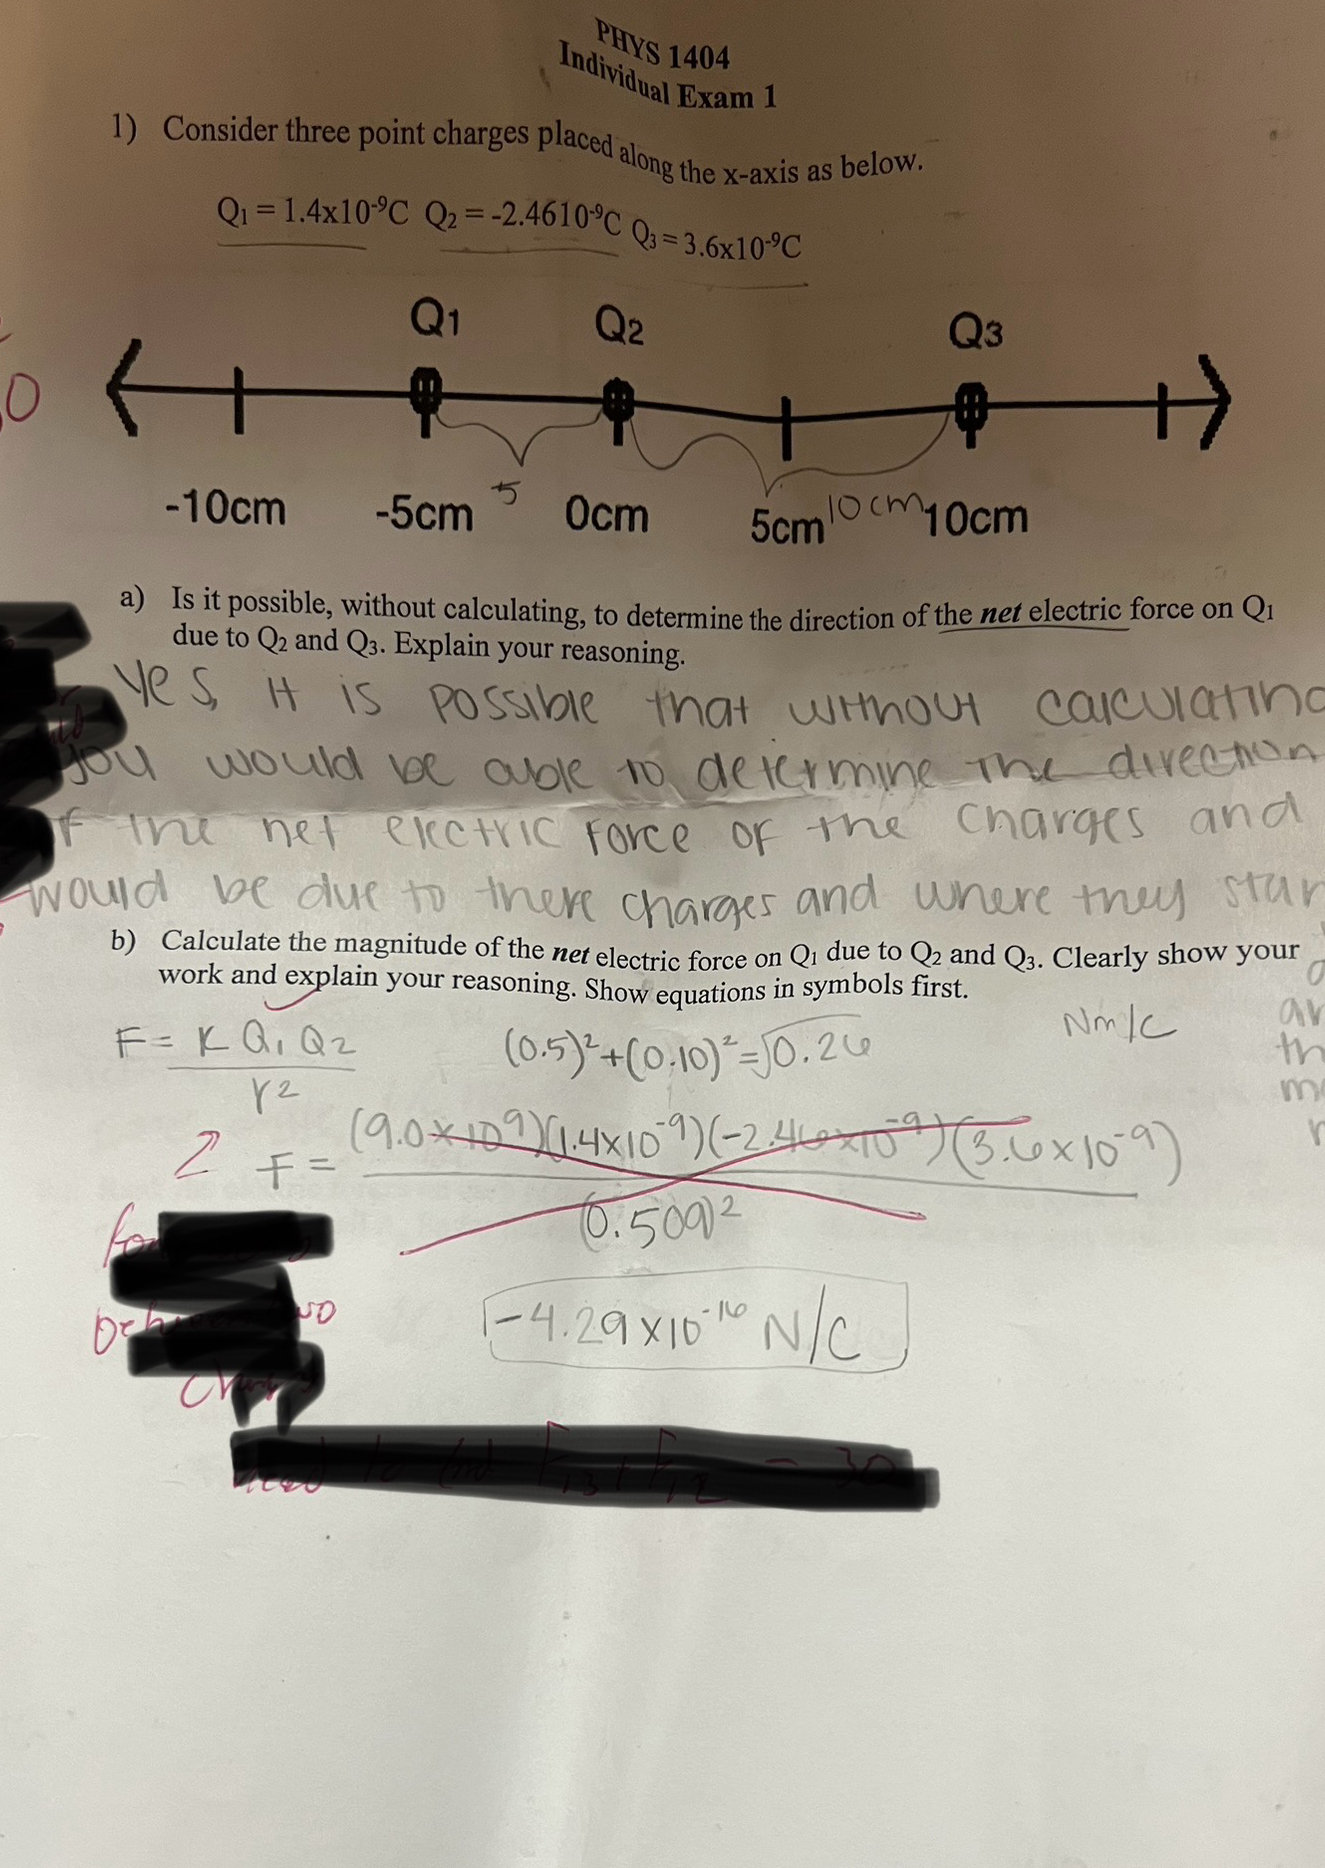 PHYS 1404
Individual Exam 1
1) Consider three point charges placed along the x-axis as below.
Q₁ = 1.4x10⁻⁹C Q₂ = -2.4610⁻⁹C Q₃ = 3.6x10⁻⁹C
Q1 Q2 Q3
0
-10cm -5cm 5 0cm 5cm 10cm 10cm
a) Is it possible, without calculating, to determine the direction of the net electric force on Q₁
due to Q₂ and Q₃. Explain your reasoning.
Yes, it is possible that without calculating
you would be able to determine the direction
of the net electric force of the charges and
would be due to there charges and where they
b) Calculate the magnitude of the net electric force on Q₁ due to Q₂ and Q₃. Clearly show your
work and explain your reasoning. Show equations in symbols first.
F = K Q₁ Q₂ / r² (0.5)²+(0.10)²=√0.26 Nm/C
2 F = (9.0×10⁹)(1.4×10⁻⁹)(-2.46×10⁻⁹)(3.6×10⁻⁹) / (0.509)²
-4.29×10⁻¹⁶ N/C
need to find F₁₃ + F₁₂